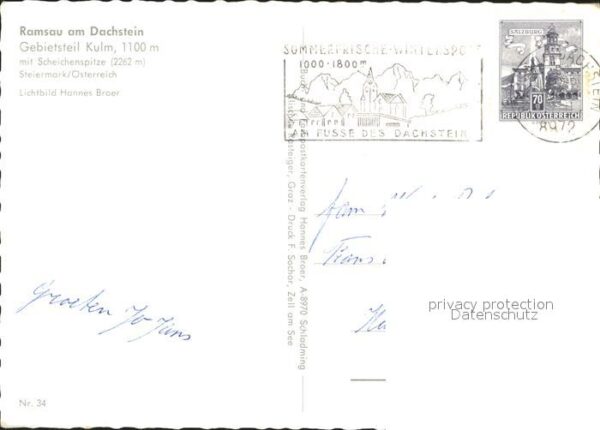 Ramsau am Dachstein
Gebietsteil Kulm, 1100 m
mit Scheichenspitze (2262 m)
Steiermark/Österreich
Lichtbild Hannes Broer
SOMMERFRISCHE-WINTERSPORT
1000-1800m
AM FUSSE DES DACHSTEIN
SALZBURG
70
REPUBLIK ÖSTERREICH
DACHSTEIN
8972
Postkartenverlag Hannes Broer, A-8970 Schladming
Graz - Druck F. Sochor, Zell am See
Fam.
Frans
privacy protection
Datenschutz
Groeten Jo Jans
Nr. 34